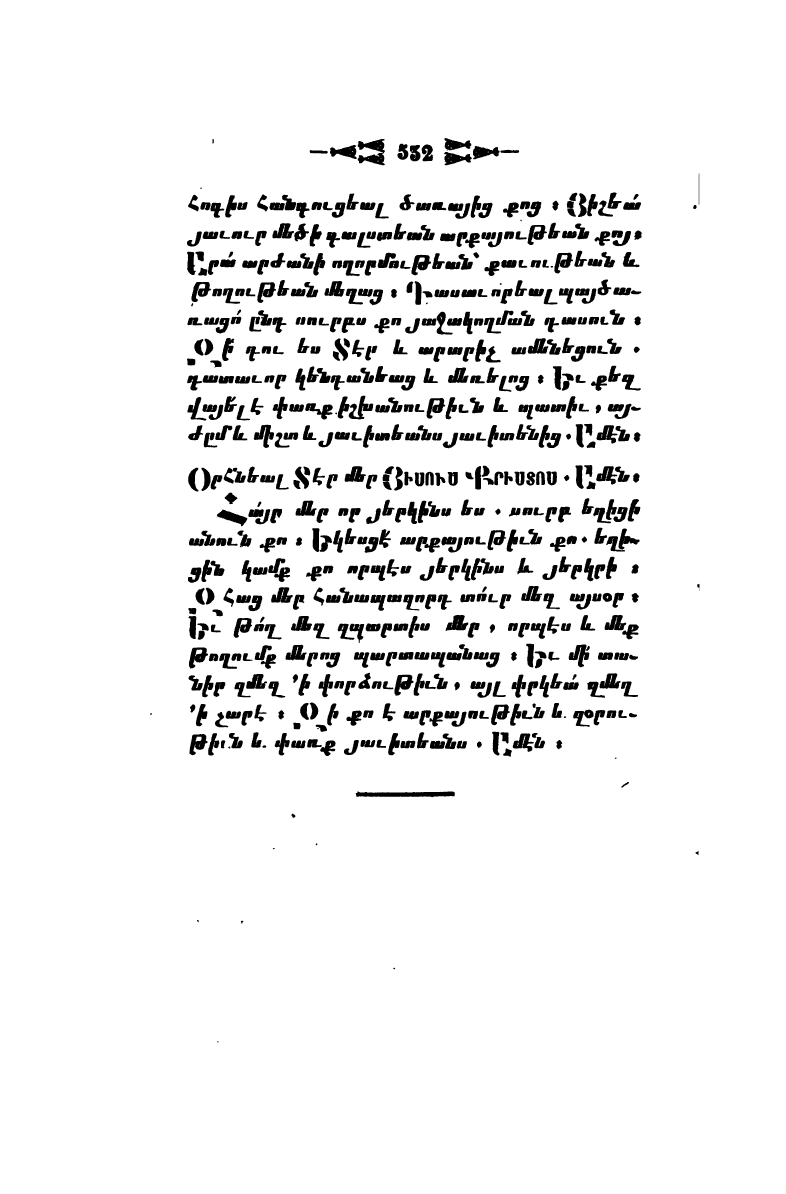 532
հոգիս հանգուցեալ ծառայից քոց ։ Յիշեա՛
յաւուր մեծի գալստեան արքայութեան քոյ։
Արա՛ արժանի ողորմութեան՝ քաւութեան և
թողութեան մեղաց ։ Դասաւորեալ պայծա֊
ռացո՛ ընդ սուրբս քո յաջակողման դասուն ։
Զի՛ դու ես Տէր և արարիչ ամենեցուն .
դատաւոր կենդանեաց և մեռելոց ։ Եւ քեզ
վայել է փառք իշխանութիւն և պատիւ , այ֊
ժըմ և միշտ և յաւիտեանս յաւիտենից . Ամէն։
Օրհնեալ Տէր մեր ՅԻՍՈՒՍ ՔՐԻՍՏՈՍ . Ամէն։
Հա՛յր մեր որ յերկինս ես . սուրբ եղիցի
անուն քո ։ Եկեսցէ՛ արքայութիւն քո . եղի֊
ցին կամք քո որպէս յերկինս և յերկրի ։
Զհաց մեր հանապազորդ տո՛ւր մեզ այսօր ։
Եւ թո՛ղ մեզ զպարտիս մեր , որպէս և մեք
թողումք մերոց պարտապանաց ։ Եւ մի՛ տա֊
նիր զմեզ ՚ի փորձութիւն , այլ փրկեա՛ զմեզ
՚ի չարէ ։ Զի քո է արքայութիւն և զօրու֊
թիւն և փառք յաւիտեանս . Ամէն ։